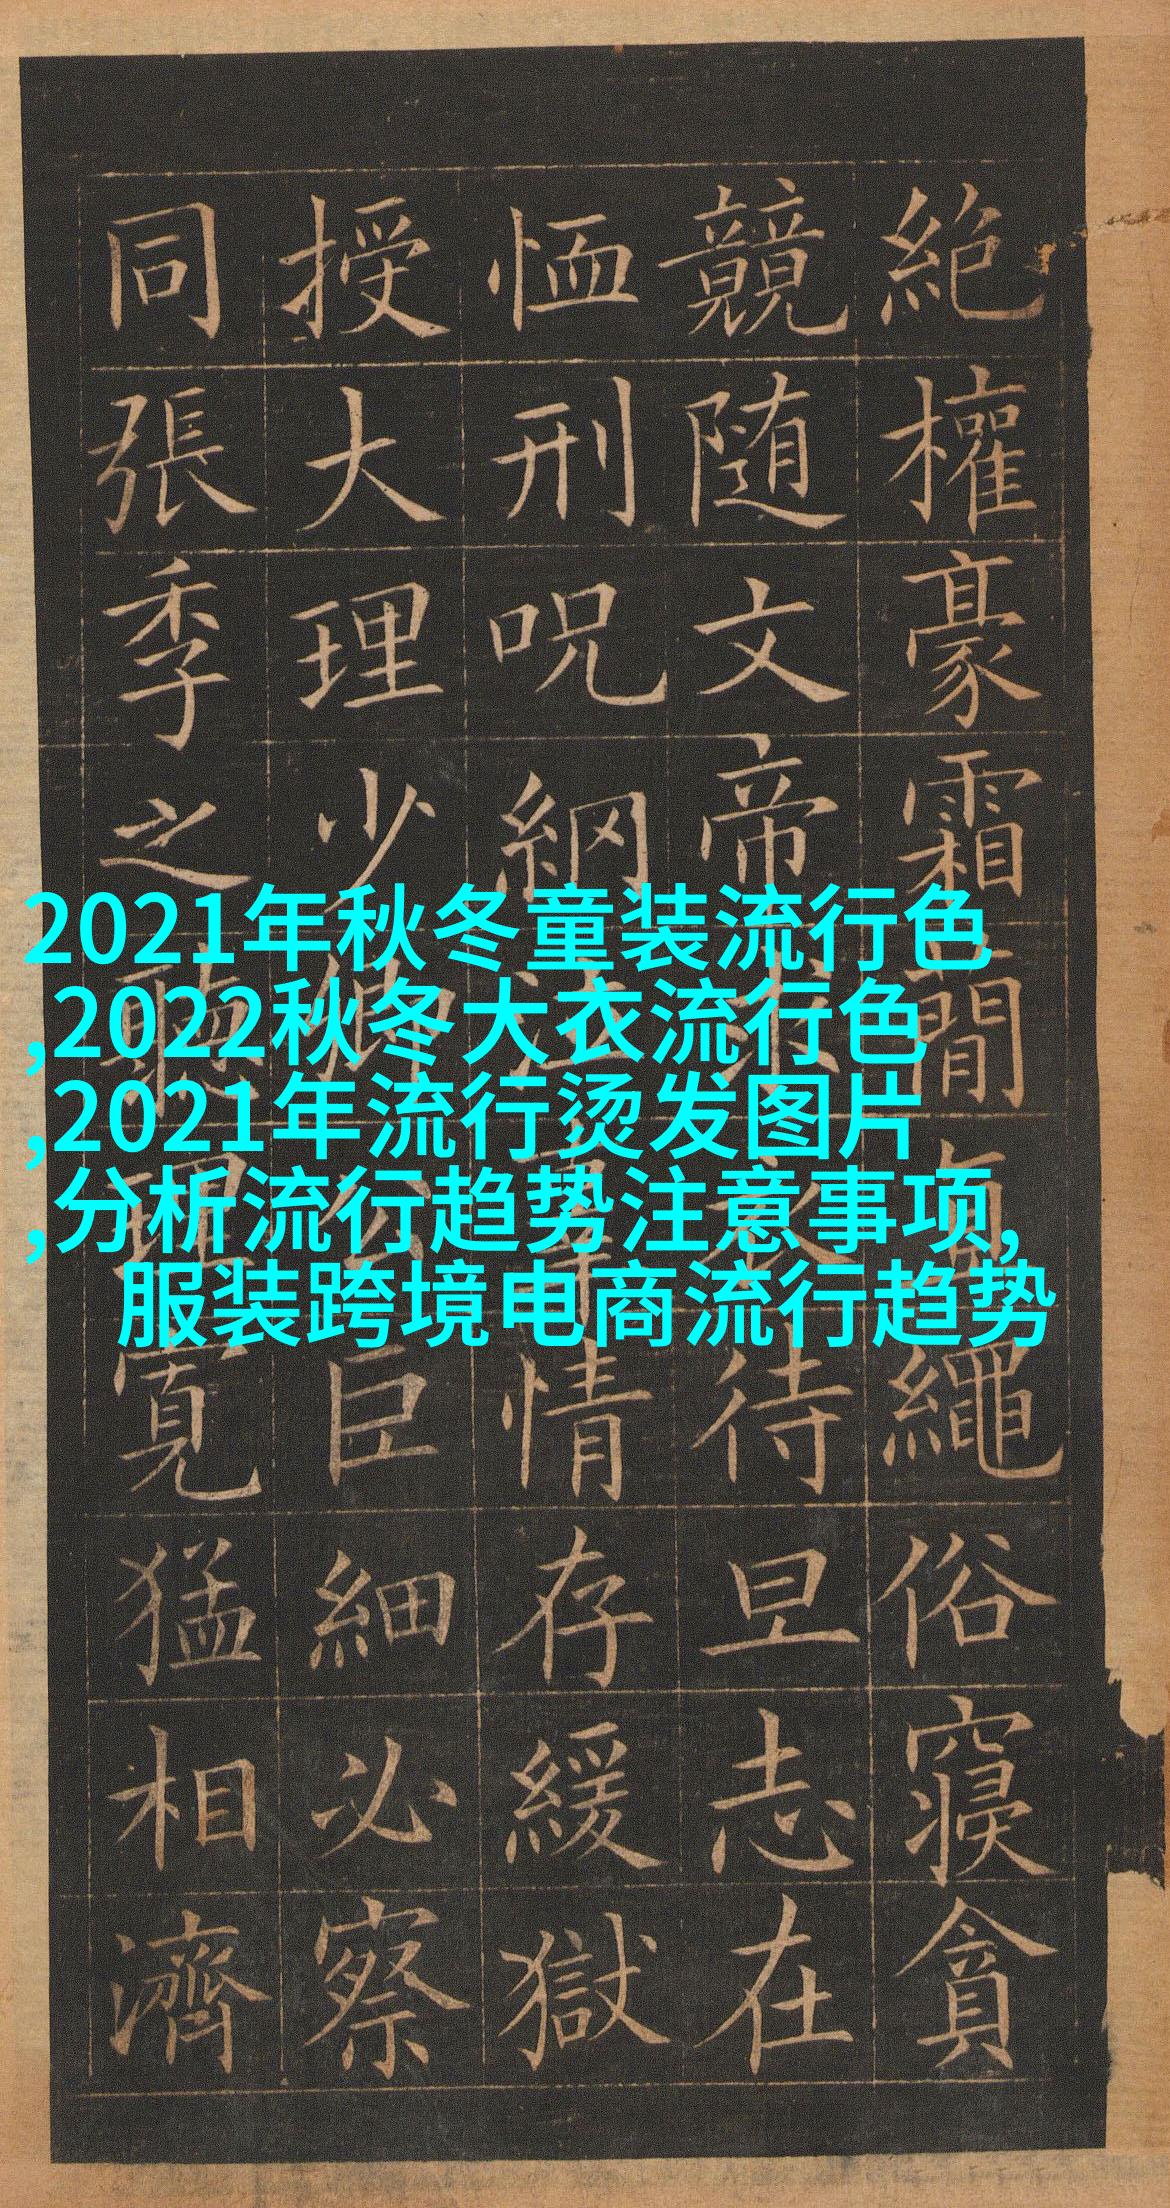 絶權豪霜簡直繩俗寝貪
競随文帝求衣待旦志在
恤刑呪網泣辜情存緩獄
授大理少卿公巨細必察
同張季之聽理寛猛相濟
2021年秋冬童装流行色
,2022秋冬大衣流行色
,2021年流行烫发图片
,分析流行趋势注意事项,
服装跨境电商流行趋势